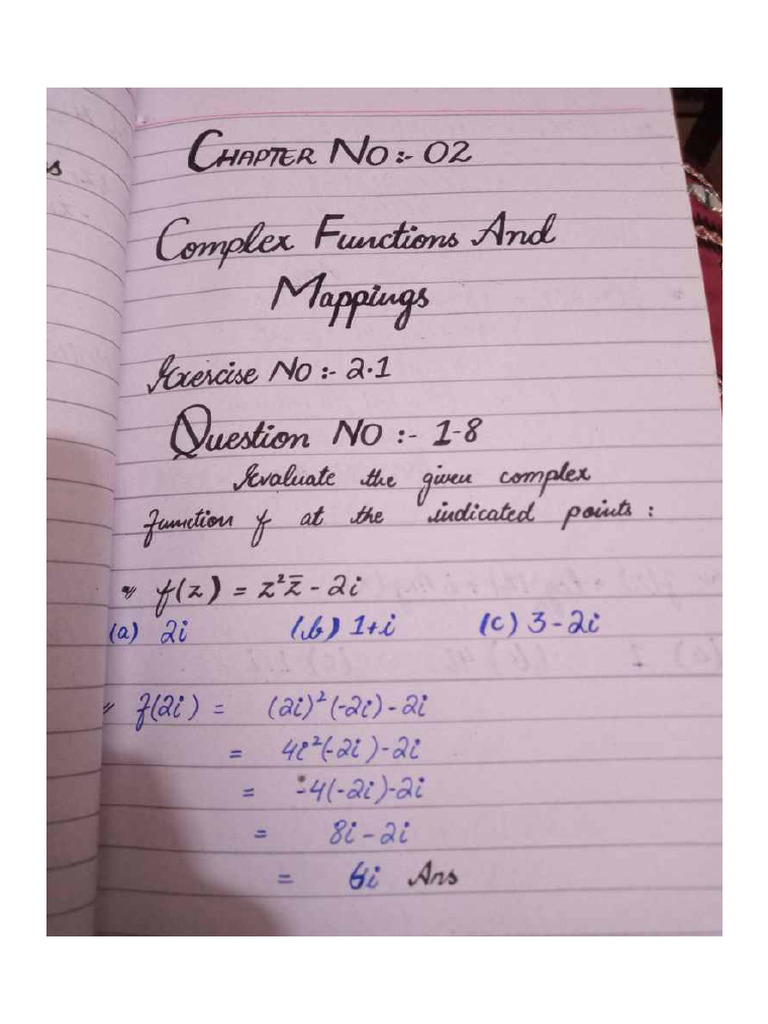 CHAPTER NO:- 02
Complex Functions And
Mappings
Exercise NO:- 2.1
Question NO:- 1-8
Evaluate the given complex
function f at the indicated points:
f(z) = z²z̄ - 2i
(a) 2i (b) 1+i (c) 3-2i
f(2i) = (2i)²(-2i)-2i
= 4i²(-2i)-2i
= -4(-2i)-2i
= 8i-2i
= 6i Ans